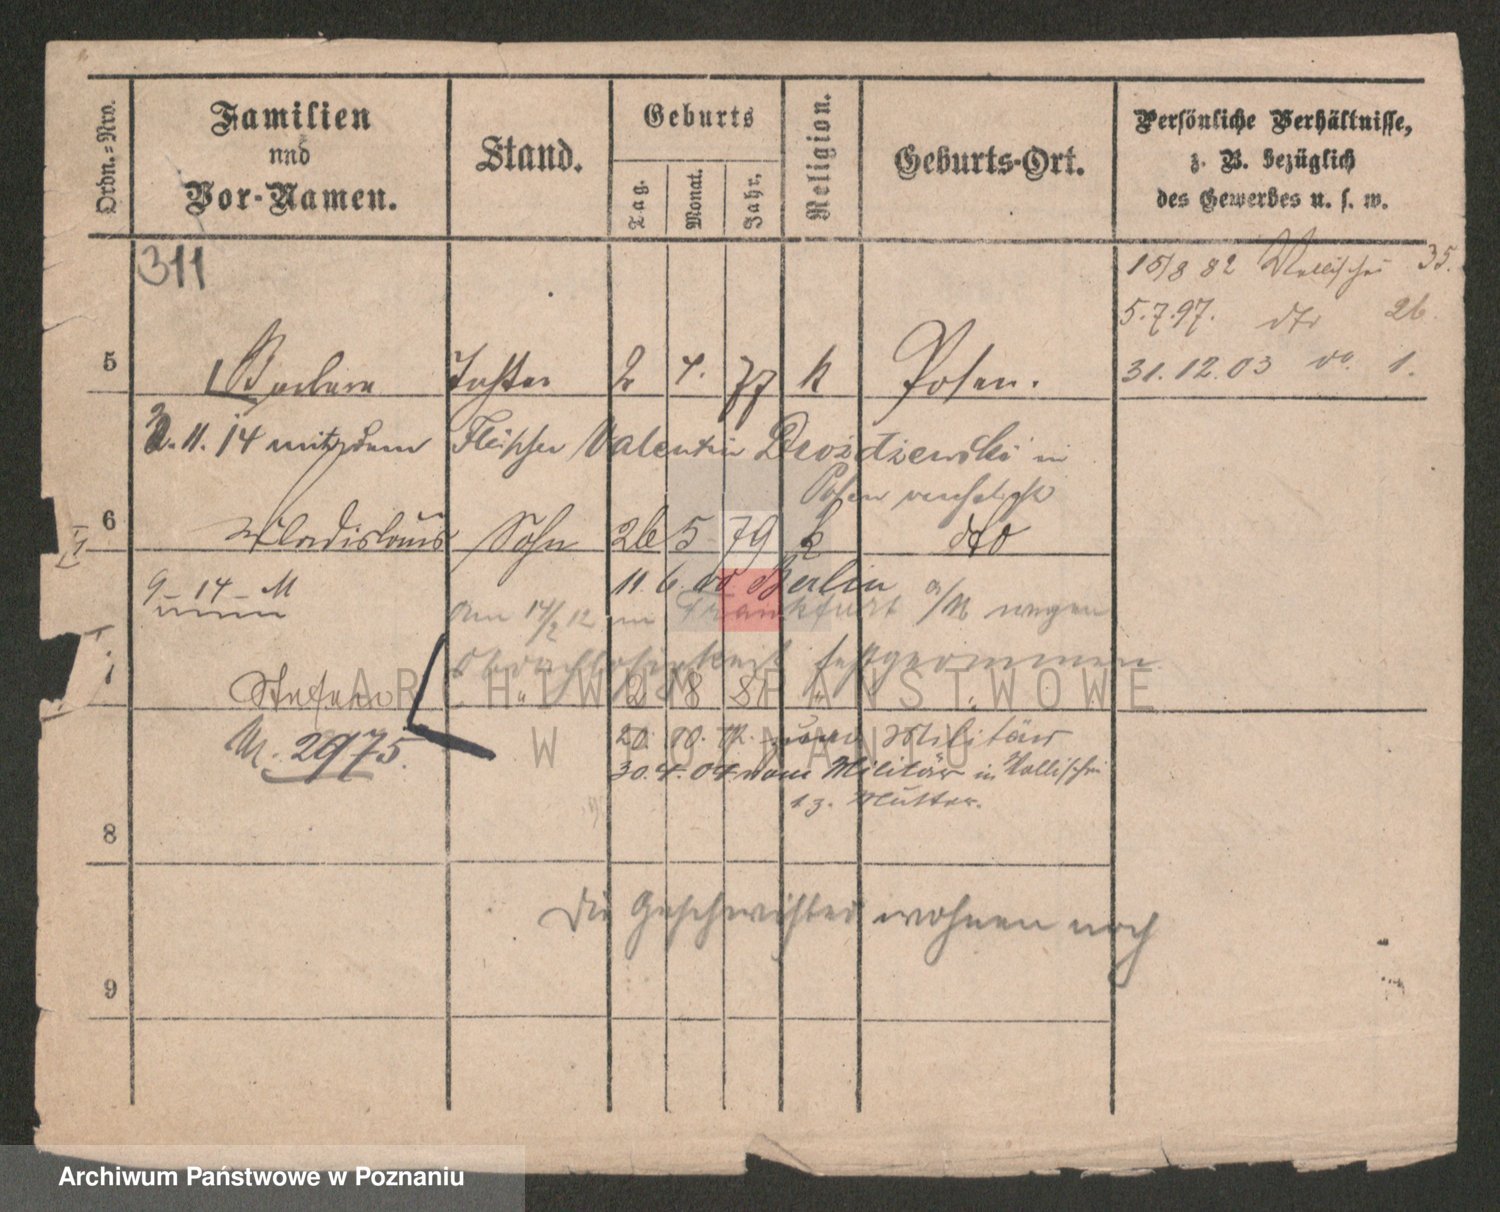 Ordn.-Nro.
Familien
und
Vor-Namen.
Stand.
Geburts
Tag.
Monat.
Jahr.
Religion.
Geburts-Ort.
Persönliche Verhältnisse,
z. B. bezüglich
des Gewerbes u. s. w.
311
15/8 82 Wallischei 35.
5.7.97. dto 26.
31.12.03 do. 1.
5 Barbara Tochter 2 4. 77 k Posen.
2.11.14 mit dem Fleischer Valentin Drozdzewski in
Posen verehelicht
6 Wladislaus Sohn 26 5 79 k dto
9-14-M
11. 6. 00. Berlin
Am 14/2 12 in Frankfurt a/M wegen
Obdachlosigkeit festgenommen
7 Stefan " 2 8 81 " "
M. 2975.
20. 10. 02. zum Militär
30.4.04 vom Militär in Wallischei
1 z. Mutter.
8
Die Geschwister wohnen noch
9
ARCHIWUM PAŃSTWOWE
W POZNANIU
Archiwum Państwowe w Poznaniu